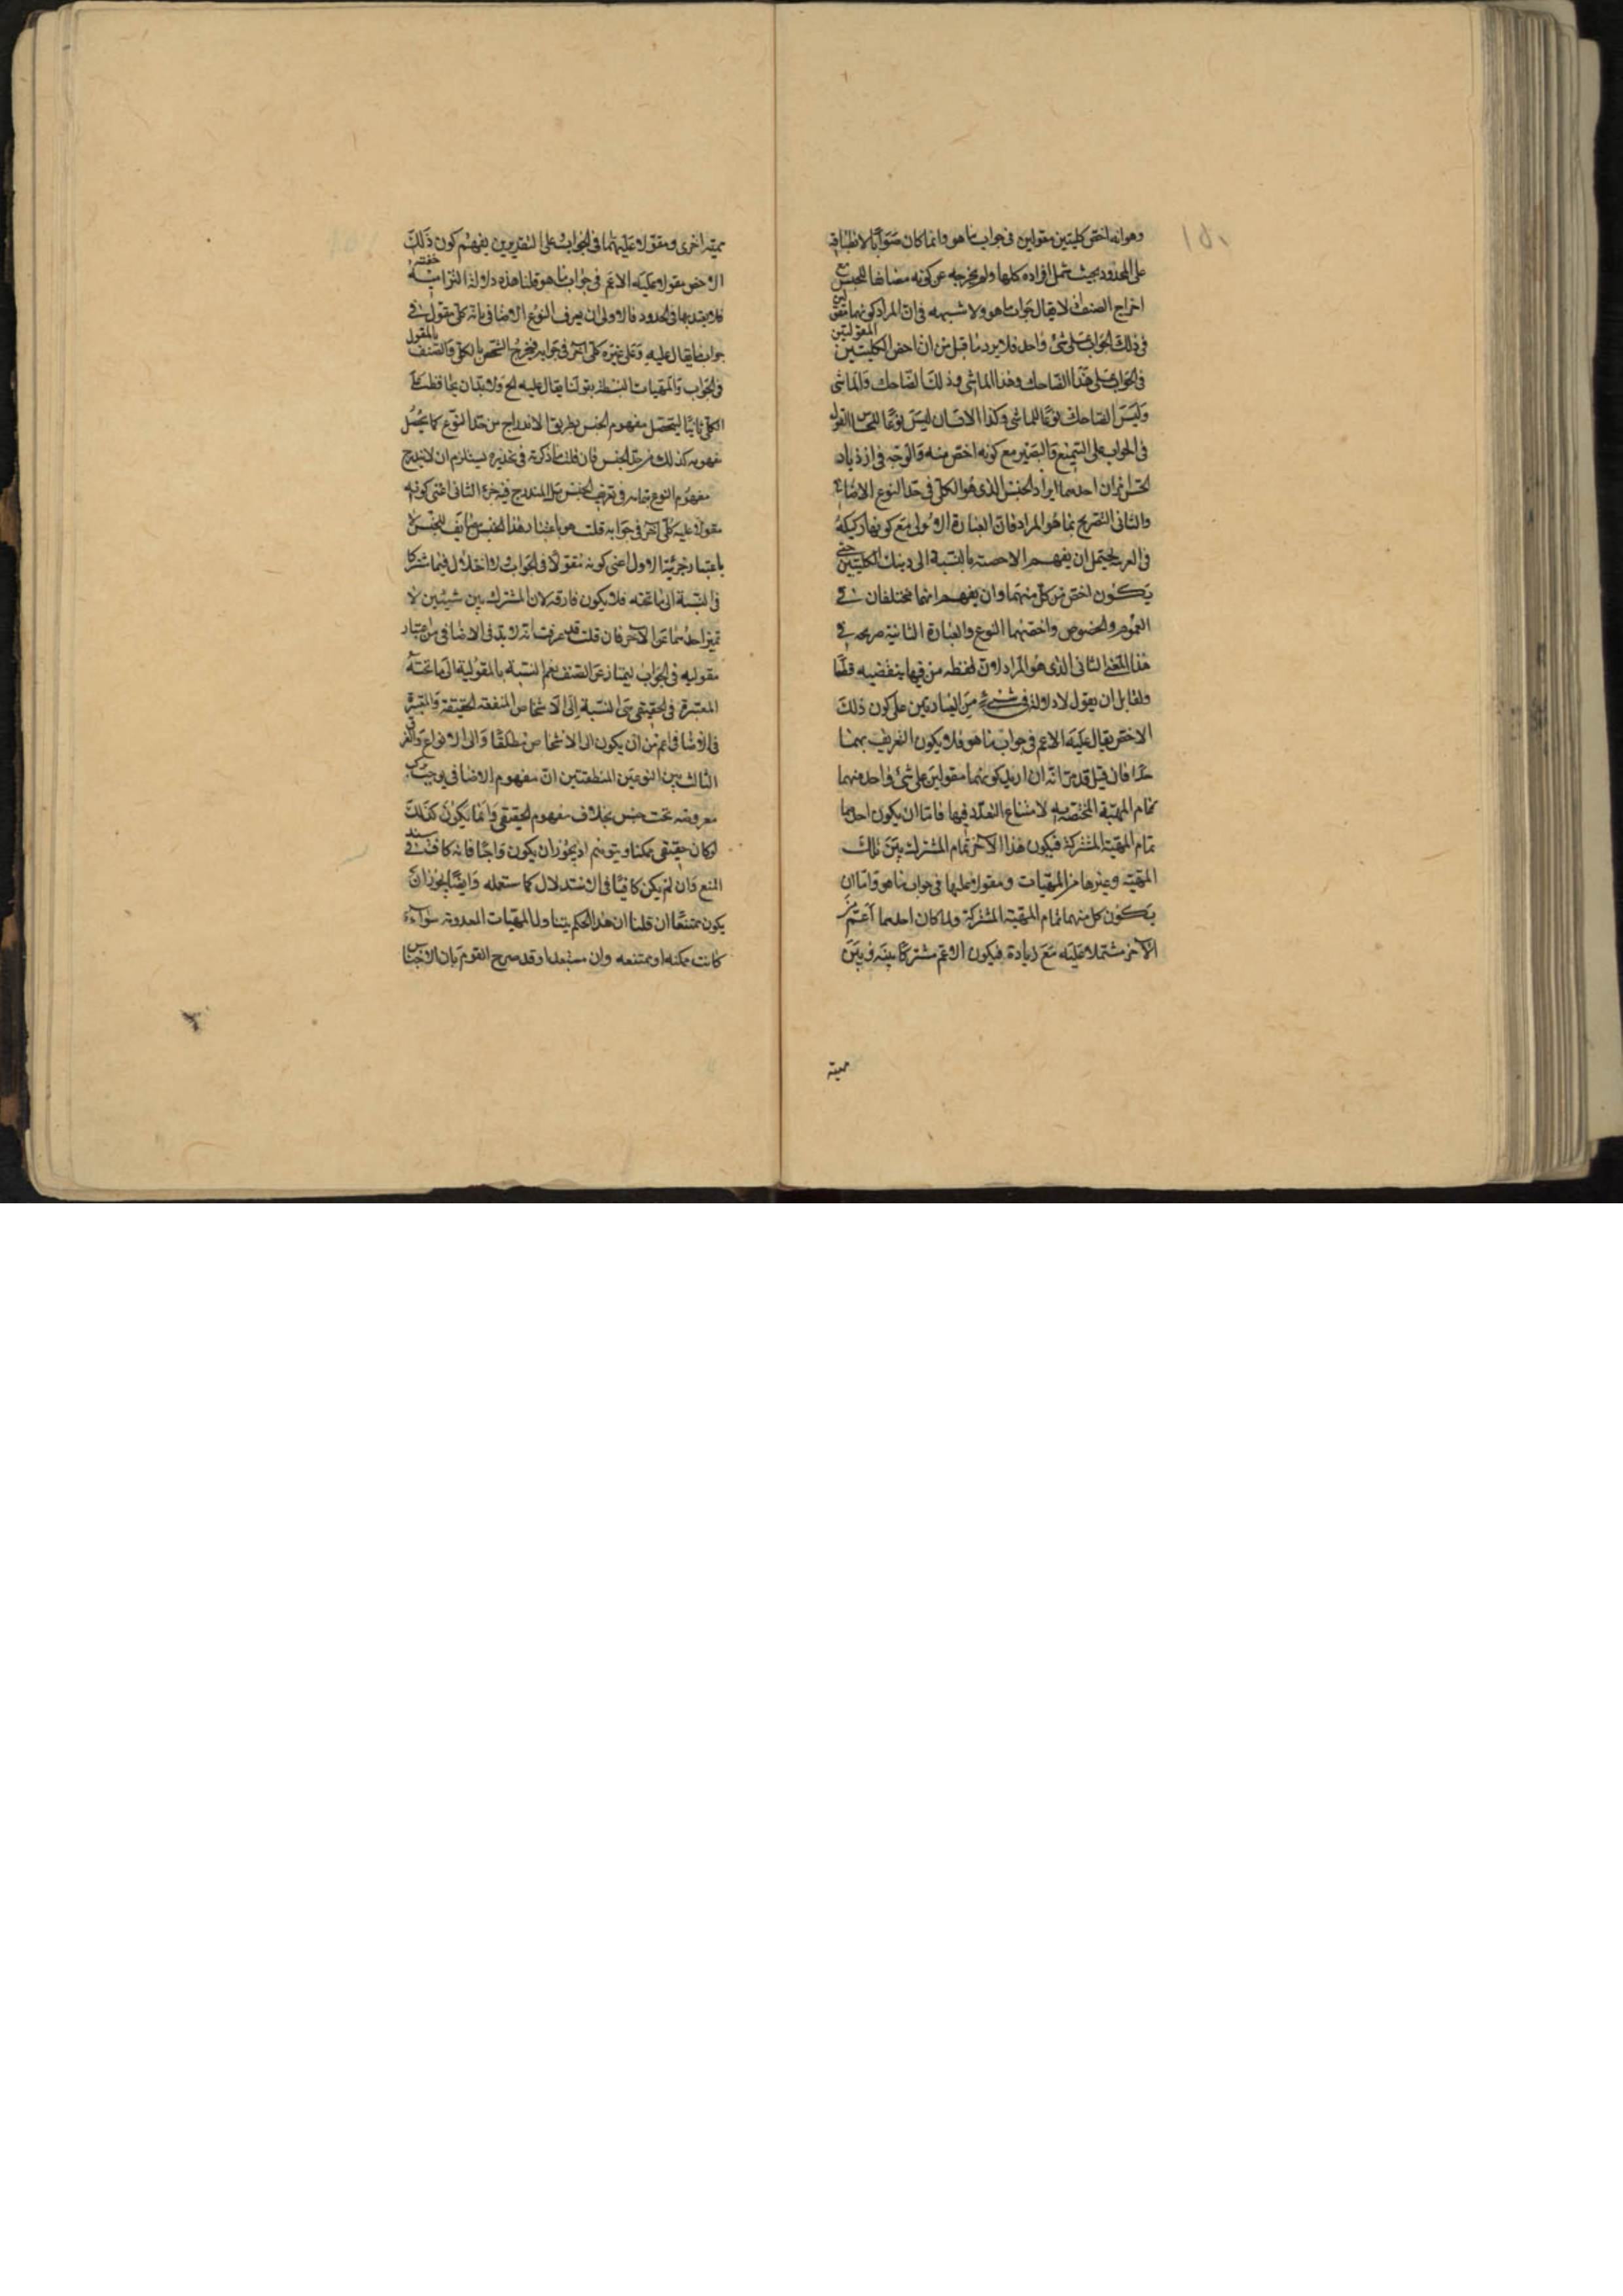 وهو انه اخص كليتين مقولين فى جواب ما هو وانما كان صوابا لانطباقه
على المحدود بحيث يشمل افراده كلها ولم يخرجه عن كونه مضايفا للجنس مع
اخراج الصنف اذ لا يقال جواب ما هو ولا شبهه فى ان المراد كونهما مقولين
فى ذلك الجواب على شئ واحد فلا يرد ما قيل من ان اخص الكليتين المقولتين
فى الجواب على هذا الضاحك وهذا الماشى وذلك الضاحك والماشى
وليس الضاحك نوعا للماشى وكذا الانسان ليس نوعا للحساس المقول
فى الجواب على السميع والبصير مع كونه اخص منه والوجه فى ازدياد
الحسن امران احدهما ايراد الجنس الذى هو الكلى فى حد النوع الاضافى
والثانى التصريح بما هو المراد فان العبارة الاولى مع كونها ركيكة
فى العربية يحتمل ان يفهم الاخصية بالنسبة الى دينك الكليتين حتى
يكون اخص من كل منهما وان يفهم انهما مختلفان فى
العموم والخصوص واخصهما النوع والعبارة الثانية صريحة فى
هذا المعنى الثانى الذى هو المراد لان لفظه من فيها تبعيضيه قلنا
ولقايل ان يقول لا دلالة فى شئ من العبارتين على كون ذلك
الاخص يقال عليه الاعم فى جواب ما هو فلا يكون التعريف بهما
حدا فان قيل قد مر انه ان اريد كونهما مقولين على شئ واحد منهما
تمام المهية المختصه به لامتناع التعدد فيها فاما ان يكون احدهما
تمام المهية المشتركة فيكون هذا الآخر تمام المشترك بين تلك
المهيه وغيرها من المهيات ومقولا عليها فى جواب ما هو واما ان
يكون كل منهما تمام المهية المشتركة ولما كان احدهما اعم من
الآخر مشتملا عليه مع زيادة فيكون الاعم مشتركا بينه وبين
مهية
مهية اخرى ومقولا عليهما فى الجواب على التقديرين يفهم كون ذلك
الاخص مقولا عليه الاعم فى جواب ما هو قلنا هذه دلالة التزامية خفية
فلا يعتد بها فى الحدود فالاولى ان يعرف النوع الاضافى بانه كلى مقول فى
جواب ما يقال عليه وعلى غيره كلى آخر فى جوابه فيخرج الشخص بالكلى والصنف بالمقول
فى الجواب والمهيات البسيطة بقولنا يقال عليه الخ ولا بد ان يحافظ على
الكلى ثانيا ليتحصل مفهوم الجنس بطريق الاندراج من حد النوع كما يحصل
مفهومه كذلك من حد الجنس فان قلت ما ذكرته فى تحديده يستلزم ان لا يندرج
مفهوم النوع بتمامه فى تعريف الجنس بل المندرج فيه جزءه الثانى اعنى كونه
مقولا عليه كلى آخر فى جوابه قلت هو باعتبار هذا الجنس مضايف للجنس لا
باعتبار جزئية الاول اعنى كونه مقولا فى الجواب ولا اخلال فيما اشتركا
فى النسبة الى ما تحته فلا يكون فارقه لان المشترك بين شيئين لا
يميز احدهما عن الآخر فان قلت قد عرفت انه لا بد فى الاضافى من اعتبار
مقوليه فى الجواب ليمتاز عن الصنف نعم النسبة بالمقولية الى ما تحته
المعتبرة فى الحقيقى هى النسبة الى الاشخاص المتفقه الحقيقة والمعتبرة
فى الاضافى اعم من ان يكون الى الاشخاص مطلقا والى الانواع والفرق
الثالث بين النوعين المنطقيين ان مفهوم الاضافى يوجب تركب
معروضه تحت جنس بخلاف مفهوم الحقيقى وانما يكون كذلك
لو كان حقيقى ممكنا ويتوهم اذ يجوز ان يكون واجبا فانه كاف فى سند
المنع وان لم يكن كافيا فى الاستدلال كما ستعلمه وايضا يجوز ان
يكون ممتنعا ان قلنا ان هذا الحكم يتناول المهيات المعدومة سواء
كانت ممكنه او ممتنعه وان منعه احد وقد صرح القوم بان الاجناس